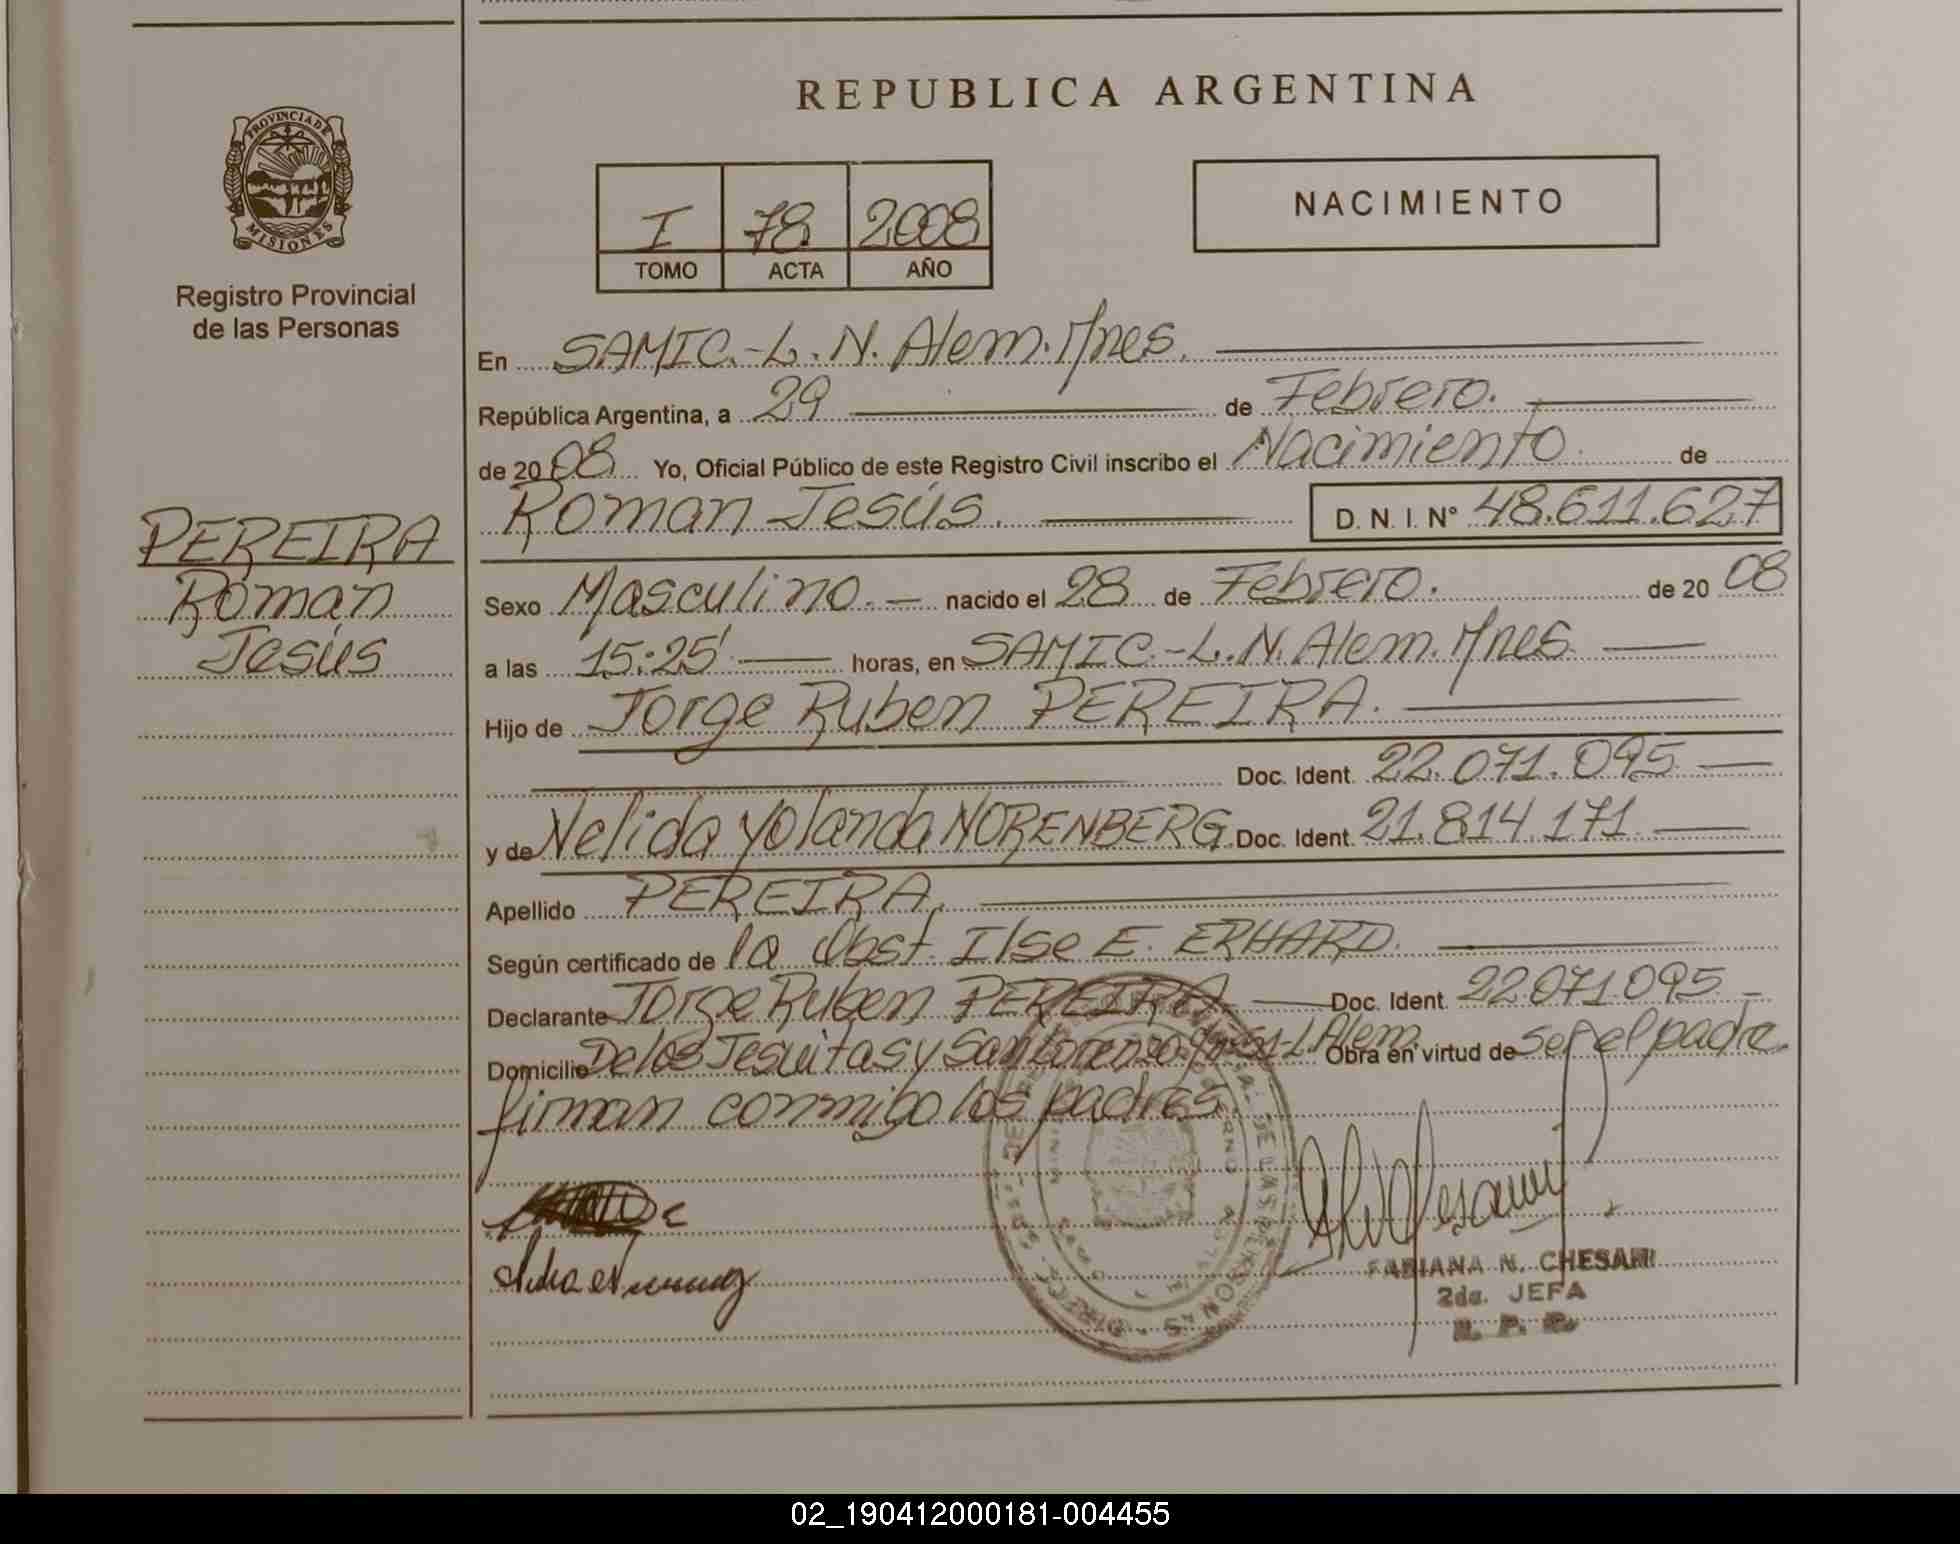 REPUBLICA ARGENTINA
PROVINCIA DE
MISIONES
Registro Provincial
de las Personas
I 78 2008
TOMO ACTA AÑO
NACIMIENTO
En SAMIC.-L.N. Alem. Mnes.
República Argentina, a 29 de Febrero.
de 2008. Yo, Oficial Público de este Registro Civil inscribo el Nacimiento de
Roman Jesús. D. N. I. Nº 48.611.627
PEREIRA
Roman
Jesús
Sexo Masculino.- nacido el 28 de Febrero. de 20 08
a las 15:25' horas, en SAMIC.-L.N. Alem. Mnes.
Hijo de Jorge Ruben PEREIRA.
Doc. Ident. 22.071.095
y de Nelida Yolanda NORENBERG. Doc. Ident. 21.814.171
Apellido PEREIRA.
Según certificado de la Obst. Ilse E. ERHARD.
Declarante Jorge Ruben PEREIRA. Doc. Ident. 22.071.095
Domicilio De los Jesuitas y San Lorenzo L. Alem. Obra en virtud de ser el padre.
firman conmigo los padres.
FABIANA N. CHESANI
2da. JEFA
R. P. P.
02_190412000181-004455